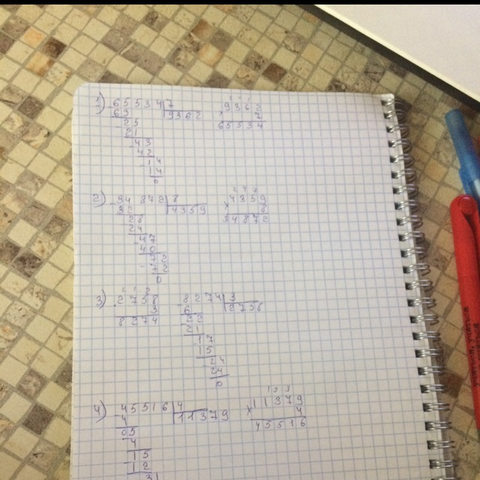 1) 65534 7 9362
63 9362 7
25 65534
21
43
42
14
14
0
2) 34 872 8 4359
32 4359 8
28 34872
24
47
40
72
72
0
3) 2758 8274 3
3 6 2758
8274 22
21
17
15
24
24
0
4) 45516 4 11379
4 11379 4
05 45516
4
15
12
31